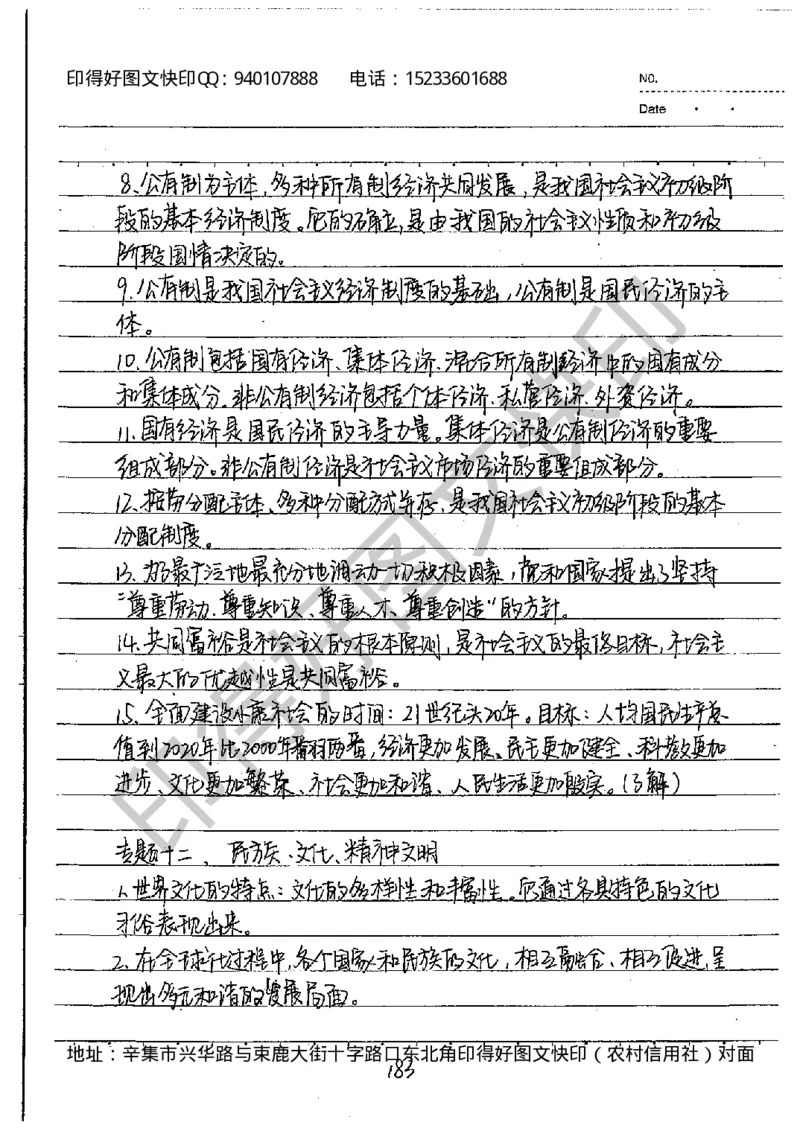 印得好图文快印QQ：940107888 电话：15233601688
NO.
Date
8、公有制为主体，多种所有制经济共同发展，是我国社会主义初级阶
段的基本经济制度。它的确立，是由我国的社会主义性质和初级
阶段国情决定的。
9、公有制是我国社会主义经济制度的基础，公有制是国民经济的主
体。
10、公有制包括国有经济、集体经济、混合所有制经济中的国有成分
和集体成分，非公有制经济包括个体经济、私营经济、外资经济。
11、国有经济是国民经济的主导力量。集体经济是公有制经济的重要
组成部分。非公有制经济是社会主义市场经济的重要组成部分。
12、按劳分配主体、多种分配方式并存，是我国社会主义初级阶段的基本
分配制度。
13、为了最广泛地最充分地调动一切积极因素，党和国家提出了坚持
“尊重劳动、尊重知识、尊重人才、尊重创造”的方针。
14、共同富裕是社会主义的根本原则，是社会主义的最终目标，社会主
义最大的优越性是共同富裕。
15、全面建设小康社会的时间：21世纪头20年。目标：人均国民生产总
值到2020年比2000年翻两番，经济更加发展、民主更加健全、科教更加
进步、文化更加繁荣、社会更加和谐、人民生活更加殷实。（了解）
专题十二、民族、文化、精神文明
1、世界文化的特点：文化的多样性和丰富性。它通过各具特色的文化
习俗表现出来。
2、在全球化过程中，各个国家和民族的文化，相互融合、相互促进，呈
现出多元和谐的发展局面。
地址：辛集市兴华路与束鹿大街十字路口东北角印得好图文快印（农村信用社）对面
183
印得好图文快印